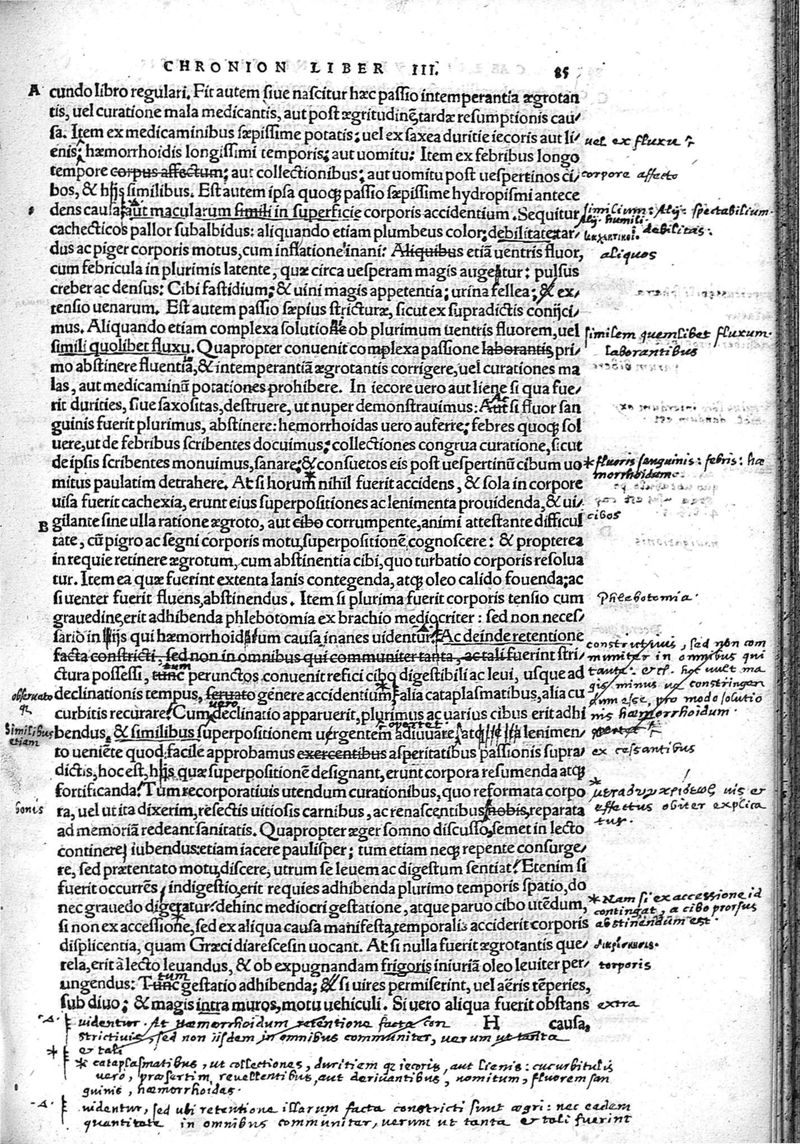 CHRONION LIBER III. 85
A cundo libro regulari. Fit autem siue nascitur hæc passio intemperantia ægrotan
tis, uel curatione mala medicantis, aut post ægritudinẽ, tardæ resumptionis cau
sa. Item ex medicaminibus sæpissime potatis: uel ex saxea duritie iecoris aut li
enis: hæmorrhoidis longissimi temporis; aut uomitu. Item ex febribus longo
uel ex fluxu
tempore corpus affectum; aut collectionibus; aut uomitu post uespertinos ci
corpore affecto
bos, & similibus. Est autem ipsa quoq; passio sæpissime hydropismi antece
dens causa, aut macularum simili in superficie corporis accidentium. Sequitur
similium: Alij: spectabilium.
cachecticos pallor subalbidus: aliquando etiam plumbeus color; debilitate tar
debilitas:
dus ac piger corporis motus, cum inflatione inani: Aliquibus etiã uentris fluor,
aliquos
cum febricula in plurimis latente, quæ circa uesperam magis augetur: pulsus
creber ac densus: Cibi fastidium; & uini magis appetentia; urina fellea; & ex
tensio uenarum. Est autem passio sæpius stricturæ, sicut ex supradictis conijci
mus. Aliquando etiam complexa ob plurimum uentris fluorem, uel
similem quemlibet fluxum.
simili quolibet fluxu. Quapropter conuenit complexa passione laborantis pri
laborantibus
mo abstinere fluentiã, & intemperantiã ægrotantis corrigere, uel curationes ma
las, aut medicaminũ potationes prohibere. In iecore uero aut liene si qua fue
rit durities, siue saxositas, destruere, ut nuper demonstrauimus: Aut si fluor san
guinis fuerit plurimus, abstinere: hemorrhoidas uero auferre; febres quoq; sol
uere, ut de febribus scribentes docuimus; collectiones congrua curatione, sicut
de ipsis scribentes monuimus, sanare; & consuetos eis post uespertinũ cibum uo
* fluoris sanguinis: febris: hæ
morrhoidæ
mitus paulatim detrahere. At si horum nihil fuerit accidens, & sola in corpore
uisa fuerit cachexia, erunt eius superpositiones ac lenimenta prouidenda, & ui
B gilante sine ulla ratione ægroto, aut cibo corrumpente, animi attestante difficul
cibos
tate, cũ pigro ac segni corporis motu, superpositionẽ cognoscere: & propterea
in requie retinere ægrotum, cum abstinentia cibi, quo turbatio corporis resolua
tur. Item ea quæ fuerint extenta lanis contegenda, atq; oleo calido fouenda; ac
si uenter fuerit fluens, abstinendus. Item si plurima fuerit corporis tensio cum
Phlebotomia.
grauedine, erit adhibenda phlebotomia ex brachio mediocriter: sed non neces
sario in ijs qui hæmorrhoidarum causa inanes uidentur. Ac deinde retentione
facta constricti, sed non in omnibus qui communiter tanta, ac tali fuerint stri
constrictiuis, sed non com
muniter in omnibus qui
ctura possessi, tunc perunctos conuenit refici cibo digestibili ac leui, usque ad
tum
declinationis tempus, seruato genere accidentium, alia cataplasmatibus, alia cu
obseruato
curbitis recurare. Cum declinatio apparuerit, plurimus ac uarius cibus erit adhi
uero
bendus, & similibus superpositionem uergentem adiuuare, atq; lenimen
Similibus
etiam
to ueniẽte quod facile approbamus exercentibus asperitatibus passionis supra
ex cessantibus
dictis, hoc est, quæ superpositionẽ designant, erunt corpora resumenda atq;
fortificanda. Tum recorporatiuis utendum curationibus, quo reformata corpo
ra, uel ut ita dixerim, resectis uitiosis carnibus, ac renascentibus nobis, reparata
bonis
ad memoriã redeant sanitatis. Quapropter æger somno discusso, semet in lecto
continere iubendus: etiam iacere paulisper; tum etiam neq; repente consurge
re, sed prætentato motu, discere, utrum se leuem ac digestum sentiat. Etenim si
fuerit occurrẽs indigestio, erit requies adhibenda plurimo temporis spatio, do
nec grauedo digeratur: dehinc mediocri gestatione, atque paruo cibo utẽdum,
* Nam si ex accessione id
contingat, a cibo prorsus
si non ex accessione, sed ex aliqua causa manifesta, temporalis acciderit corporis
abstinendum est.
displicentia, quam Græci diarescesin uocant. At si nulla fuerit ægrotantis que
rela, erit à lecto leuandus, & ob expugnandam frigoris iniuriã oleo leuiter per
torporis
ungendus: Tunc gestatio adhibenda; & si uires permiserint, uel aëris tẽperies,
tum
sub diuo; & magis intra muros, motu uehiculi. Si uero aliqua fuerit obstans
extra
H causa,
uidentur. At hæmorrhoidum retentione facta con
strictiuis, sed non iisdem in omnibus communiter, uerum ut tanta
et tali
* cataplasmatibus, ut collectiones, duritiem q; iecoris, aut lienis: cucurbitulis
uero, præsertim, reuellentibus, aut deriuantibus, uomitum, fluorem san
guinis, hæmorrhoidas.
uidentur, sed ubi retentione illarum facta constricti sunt ægri: nec eadem
quantitate in omnibus communiter, uerum ut tanta et tali fuerint